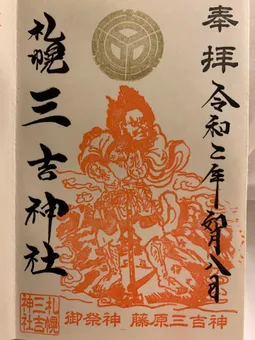 奉拝
令和二年卯月八日
札幌
三吉神社
御祭神 藤原三吉神
札幌
三吉
神社